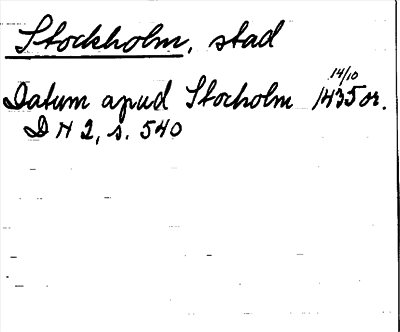 Stockholm, stad
14/10
Datum apud Stocholm 1435 or.
D N 2, s. 540